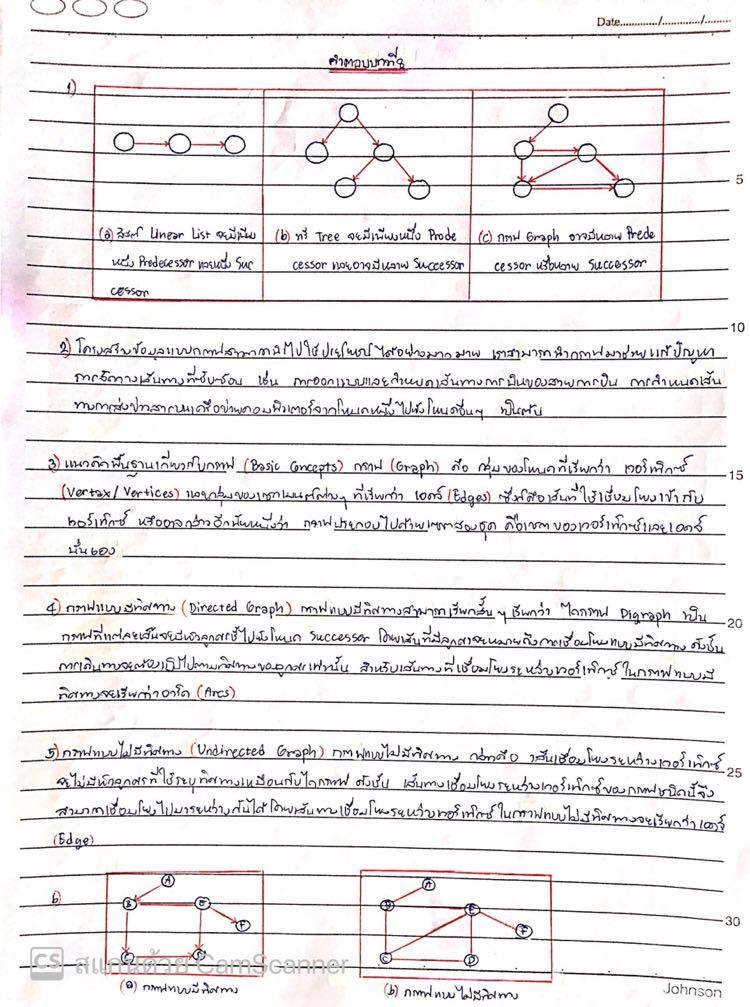 Date............/............/.........
คำตอบบทที่ 8
1)
(a) ลิสต์ Linear List จะมีเพียง
หนึ่ง Predecessor และหนึ่ง Suc
cessor
(b) ทรี Tree จะมีเพียงหนึ่ง Prode
cessor และอาจมีหลาย Successor
(c) กราฟ Graph อาจมีหลาย Prede
cessor หรือหลาย Successor
5
10
2) โครงสร้างข้อมูลแบบกราฟสามารถนำไปใช้ประโยชน์ได้อย่างมากมาย เราสามารถนำกราฟมาช่วยแก้ปัญหา
การจัดทางเส้นทางที่ซับซ้อน เช่น การออกแบบและกำหนดเส้นทางการบินของสายการบิน การกำหนดเส้น
ทางการส่งข่าวสารบนเครือข่ายคอมพิวเตอร์จากโหนดหนึ่งไปยังโหนดอื่นๆ เป็นต้น
3) แนวคิดพื้นฐานเกี่ยวกับกราฟ (Basic Concepts) กราฟ (Graph) คือ กลุ่มของโหนดที่เรียกว่า เวอร์เท็กซ์
15
(Vertax/Vertices) และกลุ่มของเซกเมนต์ต่างๆ ที่เรียกว่า เอดจ์ (Edges) ซึ่งคือเส้นที่ใช้เชื่อมโยงเข้ากับ
เวอร์เท็กซ์ หรืออาจกล่าวอีกนัยหนึ่งว่า กราฟประกอบไปด้วยเซตสองชุด คือเซตของเวอร์เท็กซ์และเอดจ์
นั่นเอง
4) กราฟแบบมีทิศทาง (Directed Graph) กราฟแบบมีทิศทางสามารถเรียกสั้นๆ เรียกว่า ไดกราฟ Digraph เป็น
20
กราฟที่แต่ละเส้นจะมีหัวลูกศรชี้ไปยังโหนด Successor โดยเส้นที่มีลูกศรจะหมายถึงการเชื่อมโยงแบบมีทิศทาง ดังนั้น
การเดินทางจะต้องเป็นไปตามทิศทางของลูกศรเท่านั้น สำหรับเส้นทางที่เชื่อมโยงระหว่างเวอร์เท็กซ์ในกราฟแบบมี
ทิศทางจะเรียกว่าอาร์ด (Arcs)
5) กราฟแบบไม่มีทิศทาง (Undirected Graph) กราฟแบบไม่มีทิศทาง กล่าวคือ เส้นเชื่อมโยงระหว่างเวอร์เท็กซ์
จะไม่มีหัวลูกศรที่ใช้ระบุทิศทางเหมือนกับไดกราฟ ดังนั้น เส้นทางเชื่อมโยงระหว่างเวอร์เท็กซ์ของกราฟชนิดนี้จึง
25
สามารถเชื่อมโยงไปมาระหว่างกันได้ โดยเส้นทางเชื่อมโยงระหว่างเวอร์เท็กซ์ในกราฟแบบไม่มีทิศทางจะเรียกว่าเอดจ์
(Edge)
6)
A
B E
F
C D
(a) กราฟแบบมีทิศทาง
A
B E
F
C D
(b) กราฟแบบไม่มีทิศทาง
30
CS สแกนด้วย CamScanner
Johnson